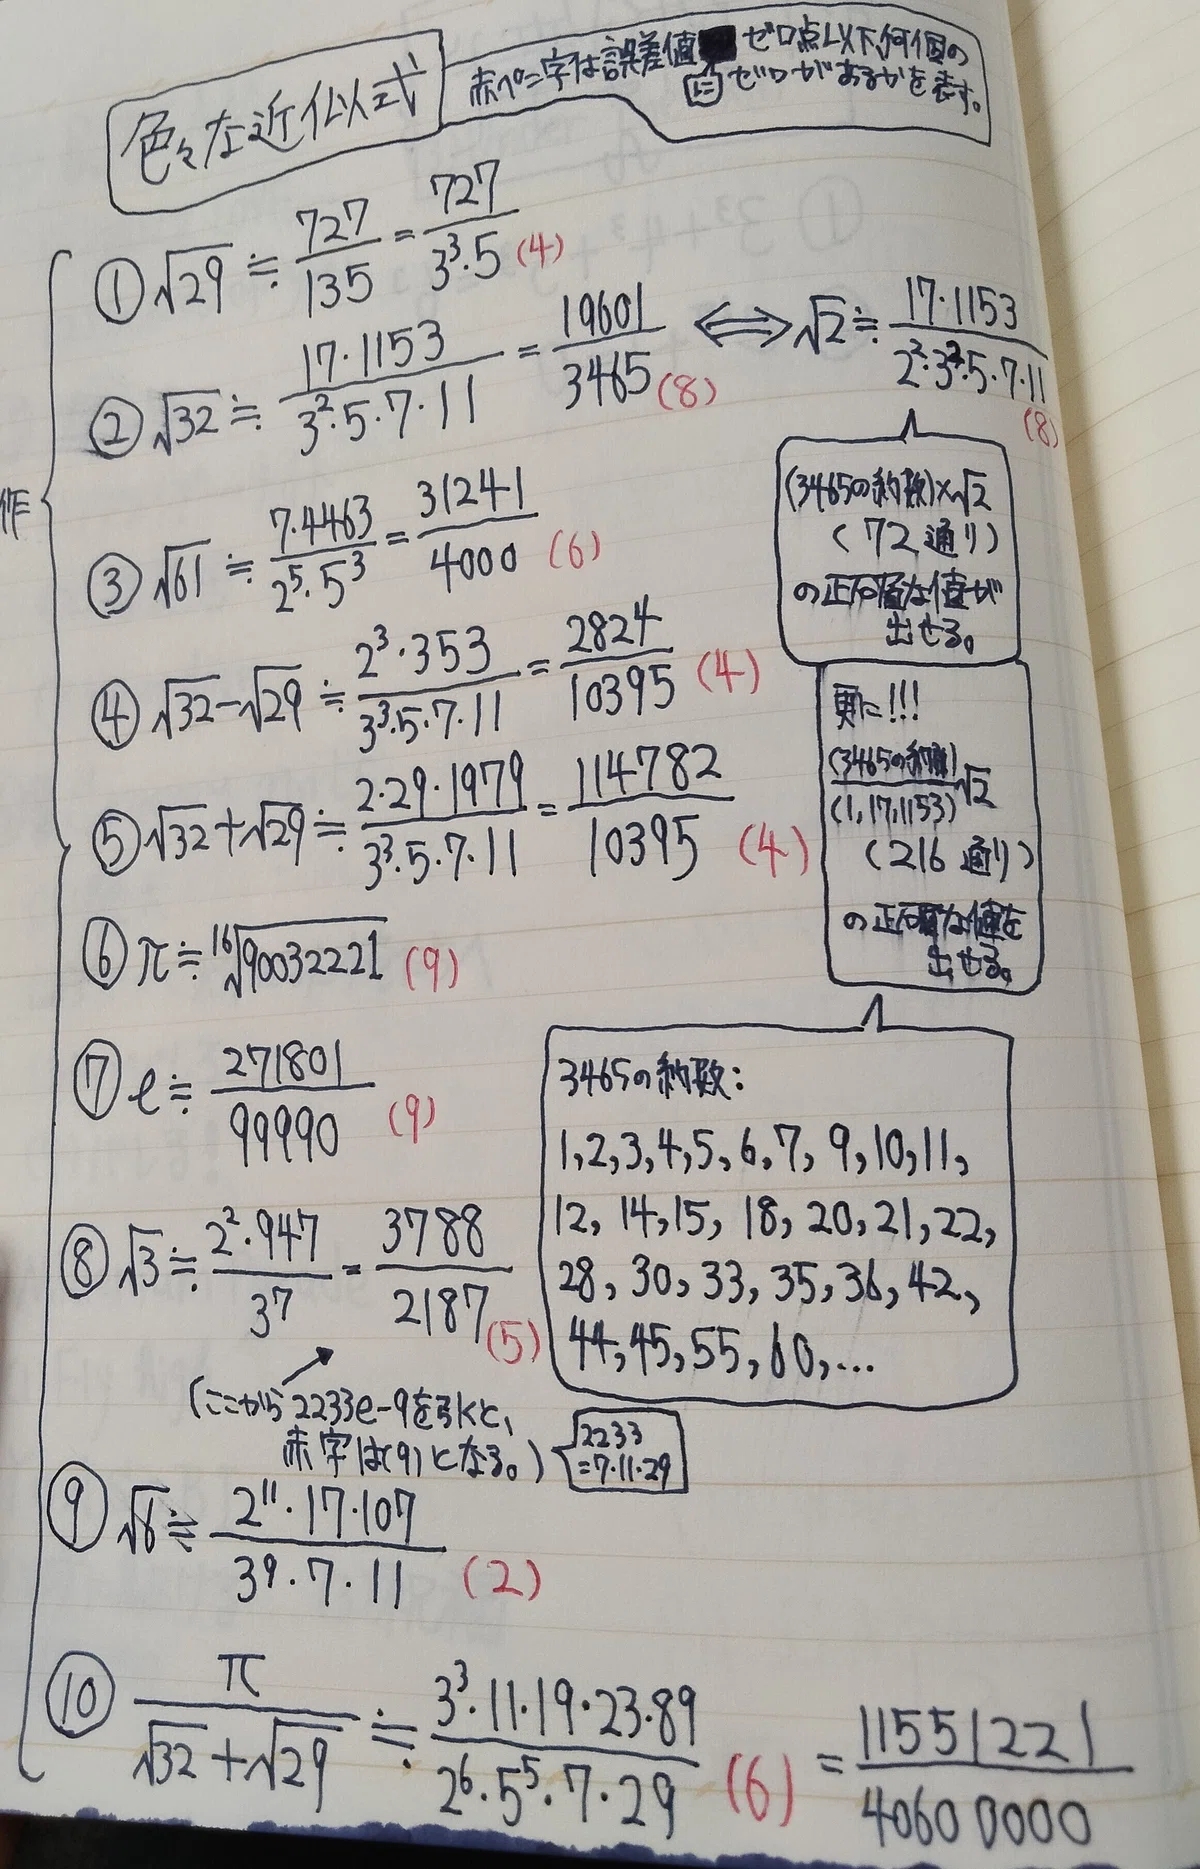 色々な近似式
赤ペン字は誤差値 ゼロ点以下、何個の
に ゼロがあるかを表す。
作
① √29 ≒ 727/135 = 727/3³·5 (4)
② √32 ≒ 17·1153/3²·5·7·11 = 19601/3465 (8) ⟺ √2 ≒ 17·1153/2²·3²·5·7·11 (8)
(3465の約数)×√2
(72通り)
の正確な値が
出せる。
③ √61 ≒ 7·4463/2⁵·5³ = 31241/4000 (6)
④ √32-√29 ≒ 2³·353/3³·5·7·11 = 2824/10395 (4)
更に!!!
(3465の約数)/(1,17,1153) √2
(216通り)
の正確な値を
出せる。
⑤ √32+√29 ≒ 2·29·1979/3³·5·7·11 = 114782/10395 (4)
⑥ π ≒ ¹⁶√90032221 (9)
⑦ e ≒ 271801/99990 (9)
3465の約数:
1,2,3,4,5,6,7,9,10,11,
12,14,15,18,20,21,22,
28,30,33,35,36,42,
44,45,55,60,...
⑧ √3 ≒ 2²·947/3⁷ = 3788/2187 (5)
(ここから2233e-9を引くと、
赤字は(9)となる。)
2233
=7·11·29
⑨ √6 ≒ 2¹¹·17·107/3⁹·7·11 (2)
⑩ π/√32+√29 ≒ 3³·11·19·23·89/2⁶·5⁵·7·29 (6) = 11551221/40600000